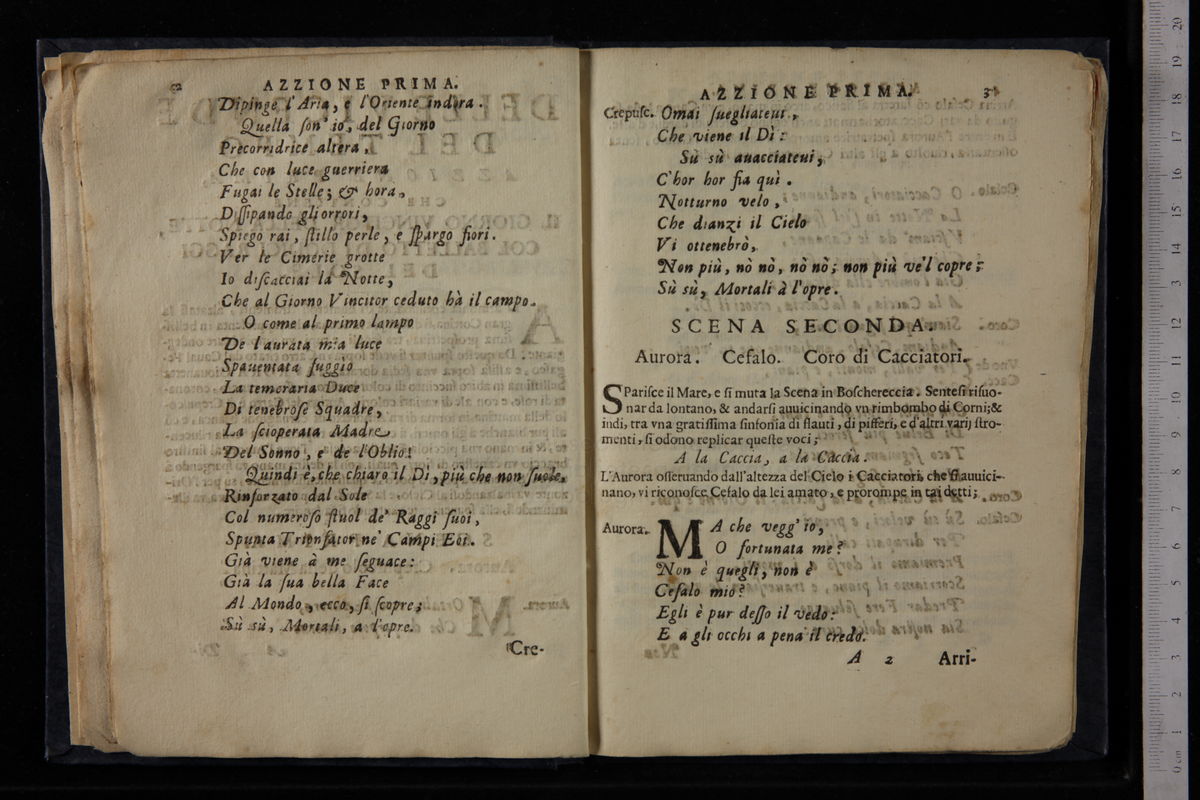 2 AZZIONE PRIMA.
Dipinge l'Aria, e l'Oriente indora.
Quella ſon' io, del Giorno
Precorridrice altera,
Che con luce guerriera
Fugai le Stelle; & hora,
Diſſipando gli orrori,
Spiego rai, ſtillo perle, e ſpargo fiori.
Ver le Cimerie grotte
Io diſcacciai la Notte,
Che al Giorno Vincitor ceduto hà il campo.
O come al primo lampo
De l'aurata mia luce
Spauentata fuggio
La temeraria Duce
Di tenebroſe Squadre,
La ſcioperata Madre
Del Sonno, e de l'Oblio!
Quindi è, che chiaro il Dì, più che non ſuole,
Rinforzato dal Sole
Col numeroſo ſtuol de' Raggi ſuoi,
Spunta Trionfator ne' Campi Eoi.
Già viene à me ſeguace:
Già la ſua bella Face
Al Mondo, ecco, ſi ſcopre;
Sù sù, Mortali, a l'opre.
Cre-
AZZIONE PRIMA. 3
Crepuſc. Omai ſuegliateui,
Che viene il Dì:
Sù sù auacciateui,
C'hor hor fia quì.
Notturno velo,
Che dianzi il Cielo
Vi ottenebrò,
Non più, nò nò, nò nò; non più ve'l copre;
Sù sù, Mortali à l'opre.
SCENA SECONDA.
Aurora. Cefalo. Coro di Cacciatori.
SPariſce il Mare, e ſi muta la Scena in Boſchereccia. Senteſi riſuo-
nar da lontano, & andarſi auuicinando vn rimbombo di Corni; &
indi, tra vna gratiſſima ſinfonia di flauti, di pifferi, e d'altri varij ſtro-
menti, ſi odono replicar queſte voci;
A la Caccia, a la Caccia.
L'Aurora oſſeruando dall'altezza del Cielo i Cacciatori, che ſi auuici-
nano, vi riconoſce Cefalo da lei amato, e prorompe in tai detti;
Aurora. MA che vegg' io,
O fortunata me?
Non è quegli, non è
Cefalo mio?
Egli è pur deſſo il vedo:
E a gli occhi a pena il credo.
A 2 Arri-